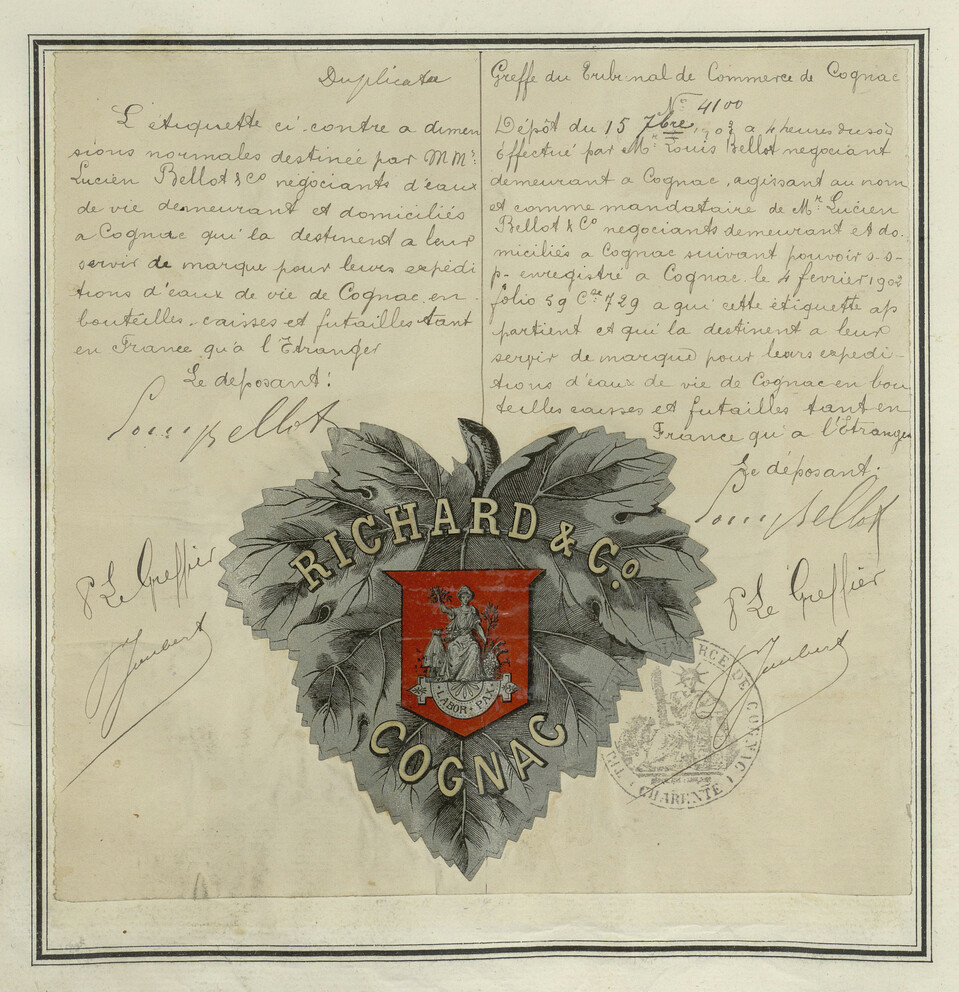 Duplicata
L'étiquette ci-contre a dimen
sions normales destinée par MMrs
Lucien Bellot & Co négociants d'eaux
de vie demeurant et domiciliés
a Cognac qui la destinent a leur
servir de marque pour leurs expédi
tions d'eaux de vie de Cognac en
bouteilles caisses et futailles tant
en France qu'à l'Etranger
Le deposant:
Louis Bellot
P Le Greffier
Greffe du Tribunal de Commerce de Cognac
No 4100
Dépôt du 15 7bre 1903 a 4 heures du soir
éffectué par Mr Louis Bellot negociant
demeurant a Cognac, agissant au nom
et comme mandataire de Mr Lucien
Bellot & Co negociants demeurant et do-
miciliés a Cognac suivant pouvoir s-s-
p- enregistré a Cognac le 4 fevrier 1902
folio 59 Ce 729 a qui cette étiquette ap
partient et qui la destinent a leur
servir de marque pour leurs expedi-
tions d'eaux de vie de Cognac en bou
teilles caisses et futailles tant en
France qu'a l'Etranger
Le déposant.
Louis Bellot
P Le Greffier
RICHARD & Co.
LABOR · PAX
COGNAC
COMMERCE DE COGNAC
CHARENTE